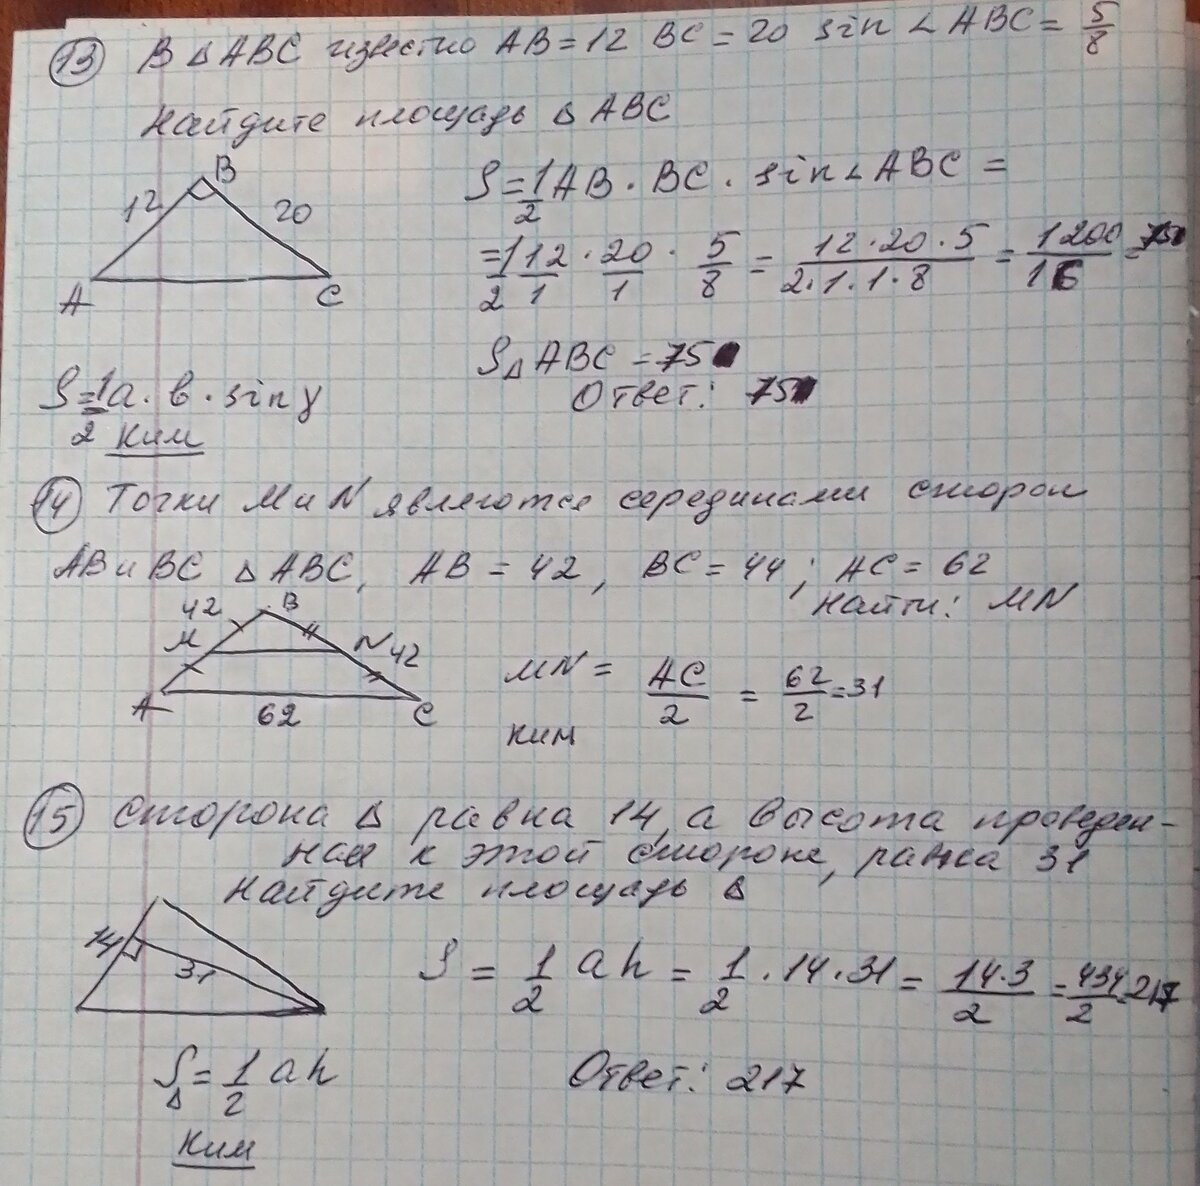 13 В △ ABC известно AB = 12 BC = 20 sin ∠ ABC = 5/8
Найдите площадь △ ABC
B
12
20
A
C
S = 1/2 AB · BC · sin ∠ ABC =
= 1/2 12/1 · 20/1 · 5/8 = 12·20·5/2·1·1·8 = 1200/16 = 75
S△ ABC = 75
Ответ: 75
S = 1/2 a · b · sin γ
Ким
14 Точки M и N являются серединами сторон
AB и BC △ ABC, AB = 42, BC = 44; AC = 62
Найти: MN
42
B
M
N
42
A
62
C
MN = AC/2 = 62/2 = 31
Ким
15 Сторона △ равна 14, а высота проведен-
ная к этой стороне, равна 31
Найдите площадь △
14
31
S = 1/2 a h = 1/2 · 14 · 31 = 14·3/2 = 434/2 = 217
S△ = 1/2 a h
Ответ: 217
Ким